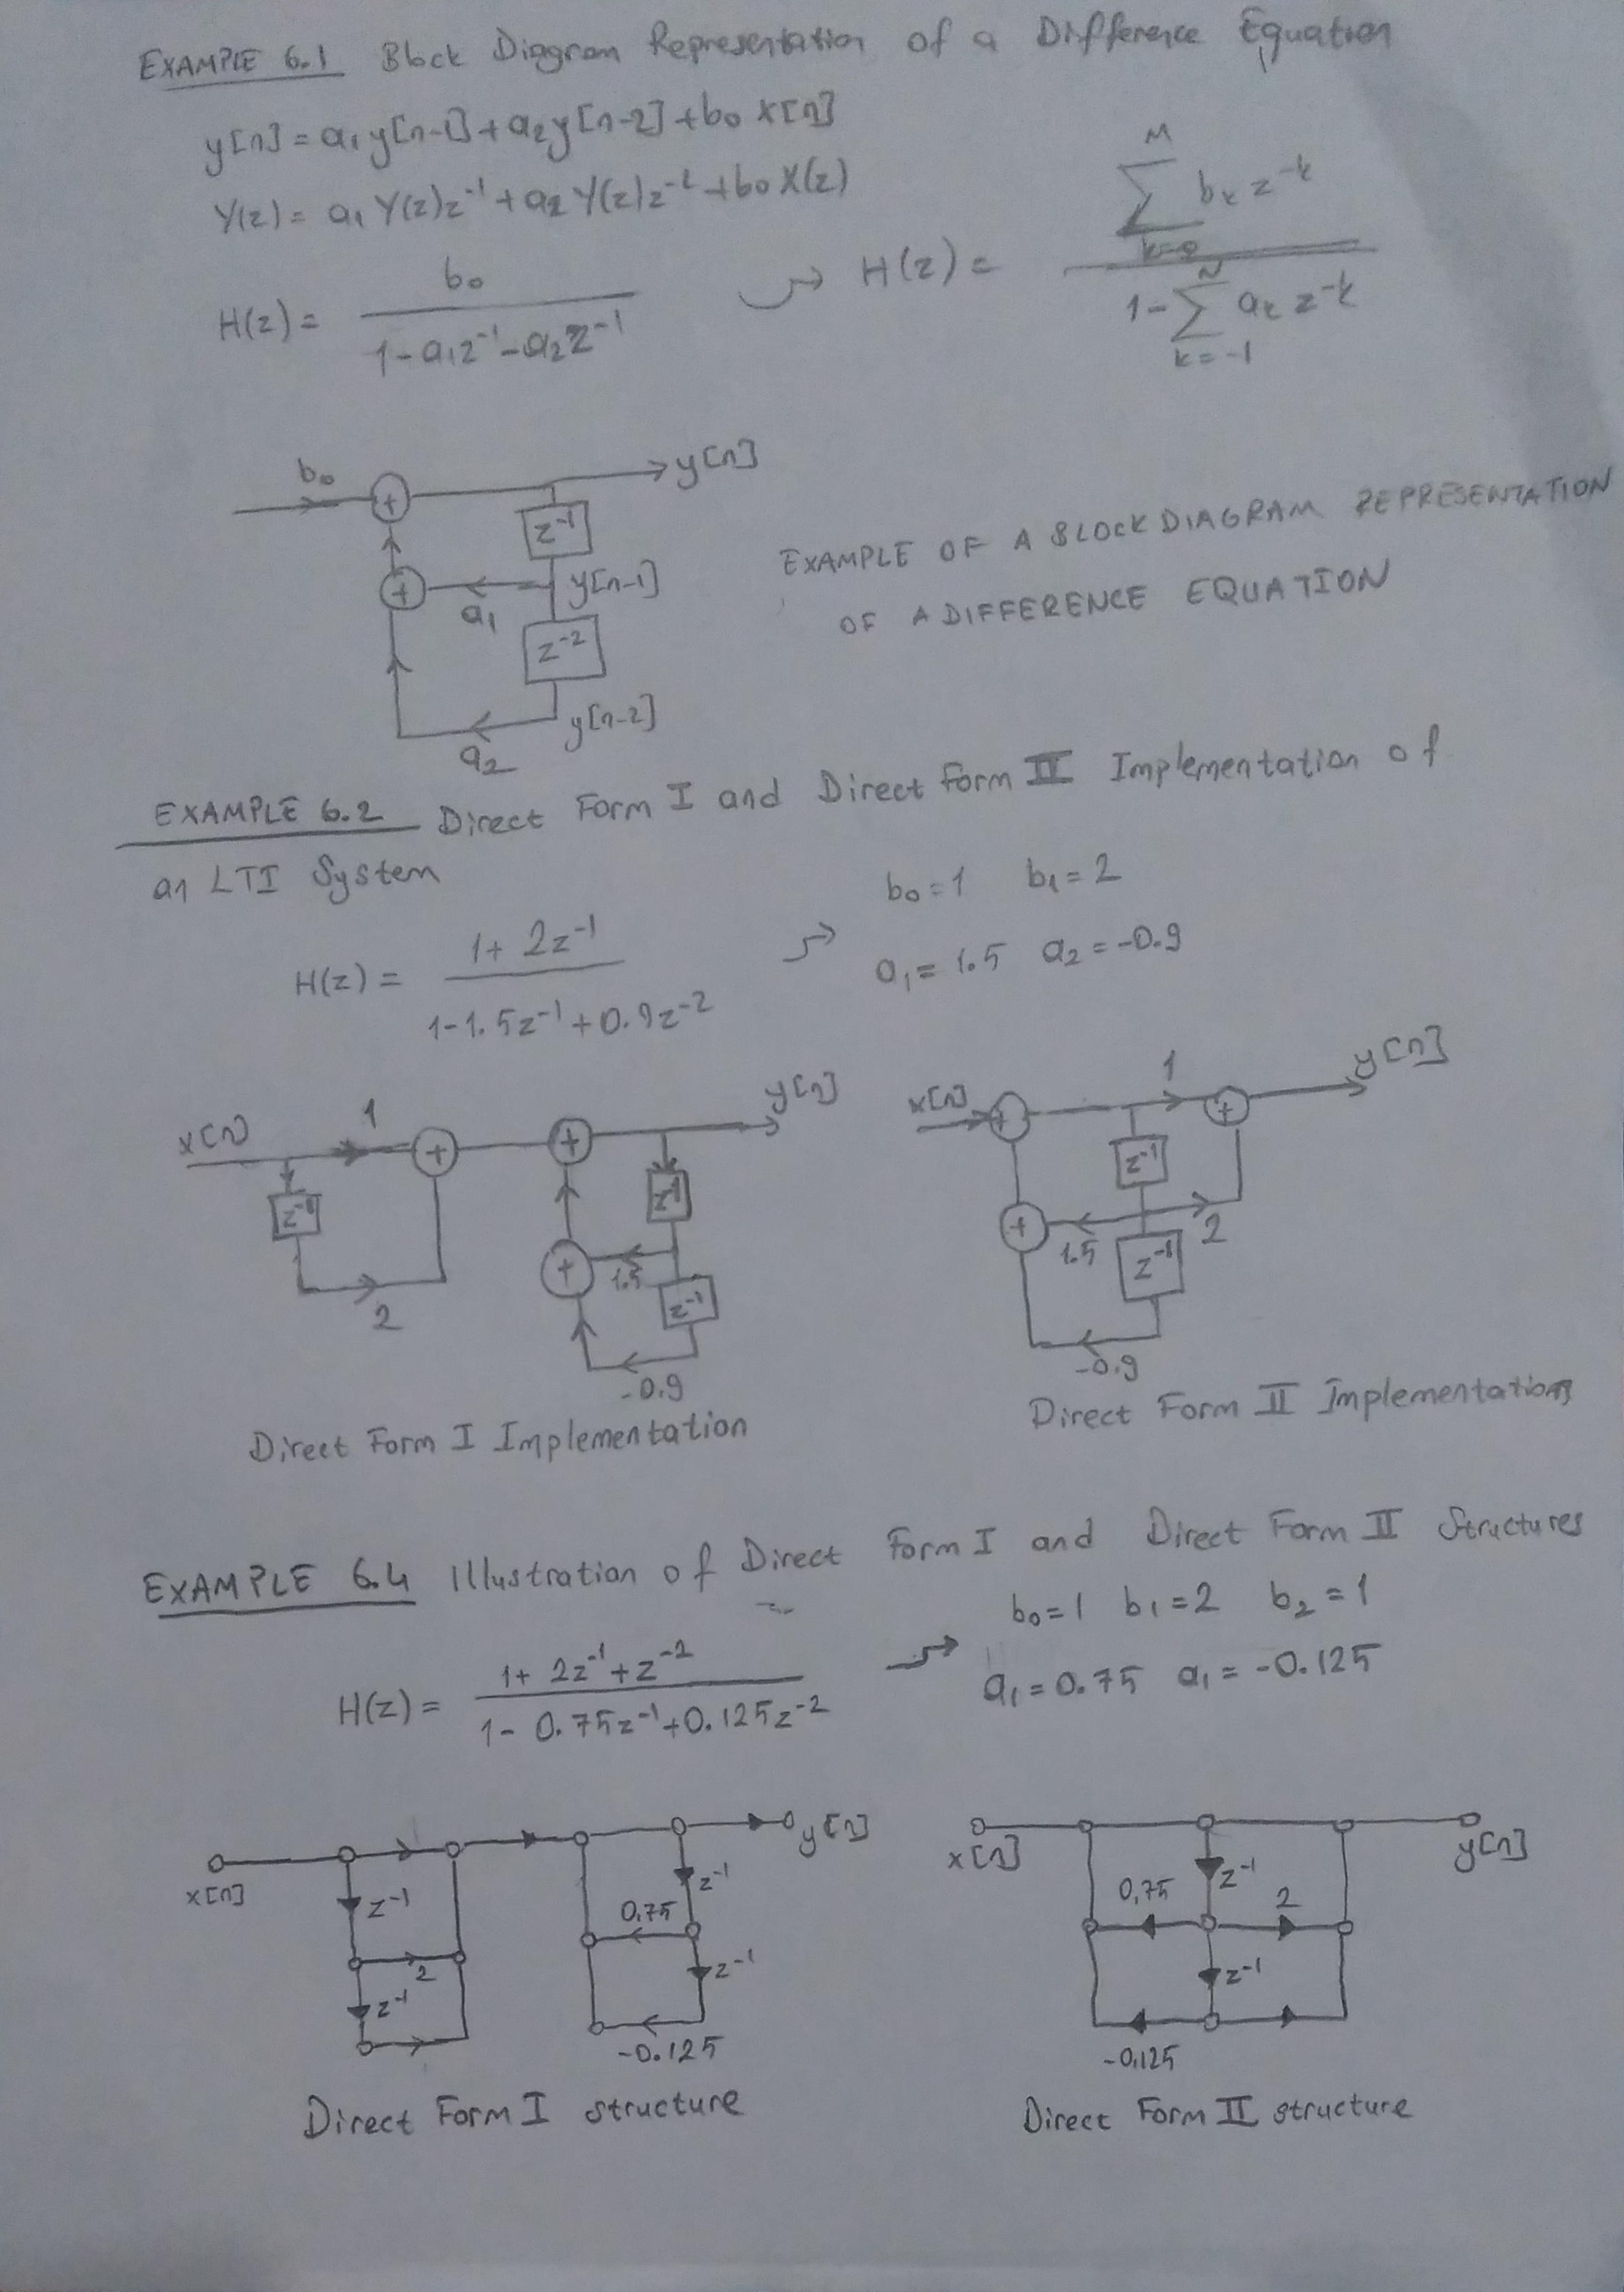 EXAMPLE 6.1 Block Diagram Representation of a Difference Equation
y[n] = a₁y[n-1] + a₂y[n-2] + b₀ x[n]
Y(z) = a₁ Y(z)z⁻¹ + a₂ Y(z)z⁻² + b₀ X(z)
H(z) = b₀ / (1 - a₁z⁻¹ - a₂z⁻¹) ⤳ H(z) = M ∑ k=0 bₖ z⁻ᵏ / (1 - N ∑ k=-1 aₖ z⁻ᵏ)
b₀ + y[n]
z⁻¹
+ a₁ y[n-1]
z⁻²
a₂ y[n-2]
EXAMPLE OF A BLOCK DIAGRAM REPRESENTATION
OF A DIFFERENCE EQUATION
EXAMPLE 6.2 Direct Form I and Direct Form II Implementation of
an LTI System
H(z) = (1 + 2z⁻¹) / (1 - 1.5z⁻¹ + 0.9z⁻²)
b₀ = 1 b₁ = 2
a₁ = 1.5 a₂ = -0.9
x[n] 1 + + y[n]
z⁻¹ z⁻¹
+ 1.5
2 z⁻¹
-0.9
Direct Form I Implementation
x[n] + 1 + y[n]
z⁻¹
+ 1.5 2
z⁻¹
-0.9
Direct Form II Implementation
EXAMPLE 6.4 Illustration of Direct Form I and Direct Form II Structures
H(z) = (1 + 2z⁻¹ + z⁻²) / (1 - 0.75z⁻¹ + 0.125z⁻²)
b₀ = 1 b₁ = 2 b₂ = 1
a₁ = 0.75 a₁ = -0.125
x[n] y[n]
z⁻¹ z⁻¹
2 0.75
z⁻¹ z⁻¹
-0.125
Direct Form I structure
x[n] y[n]
z⁻¹
0.75 2
z⁻¹
-0.125
Direct Form II structure